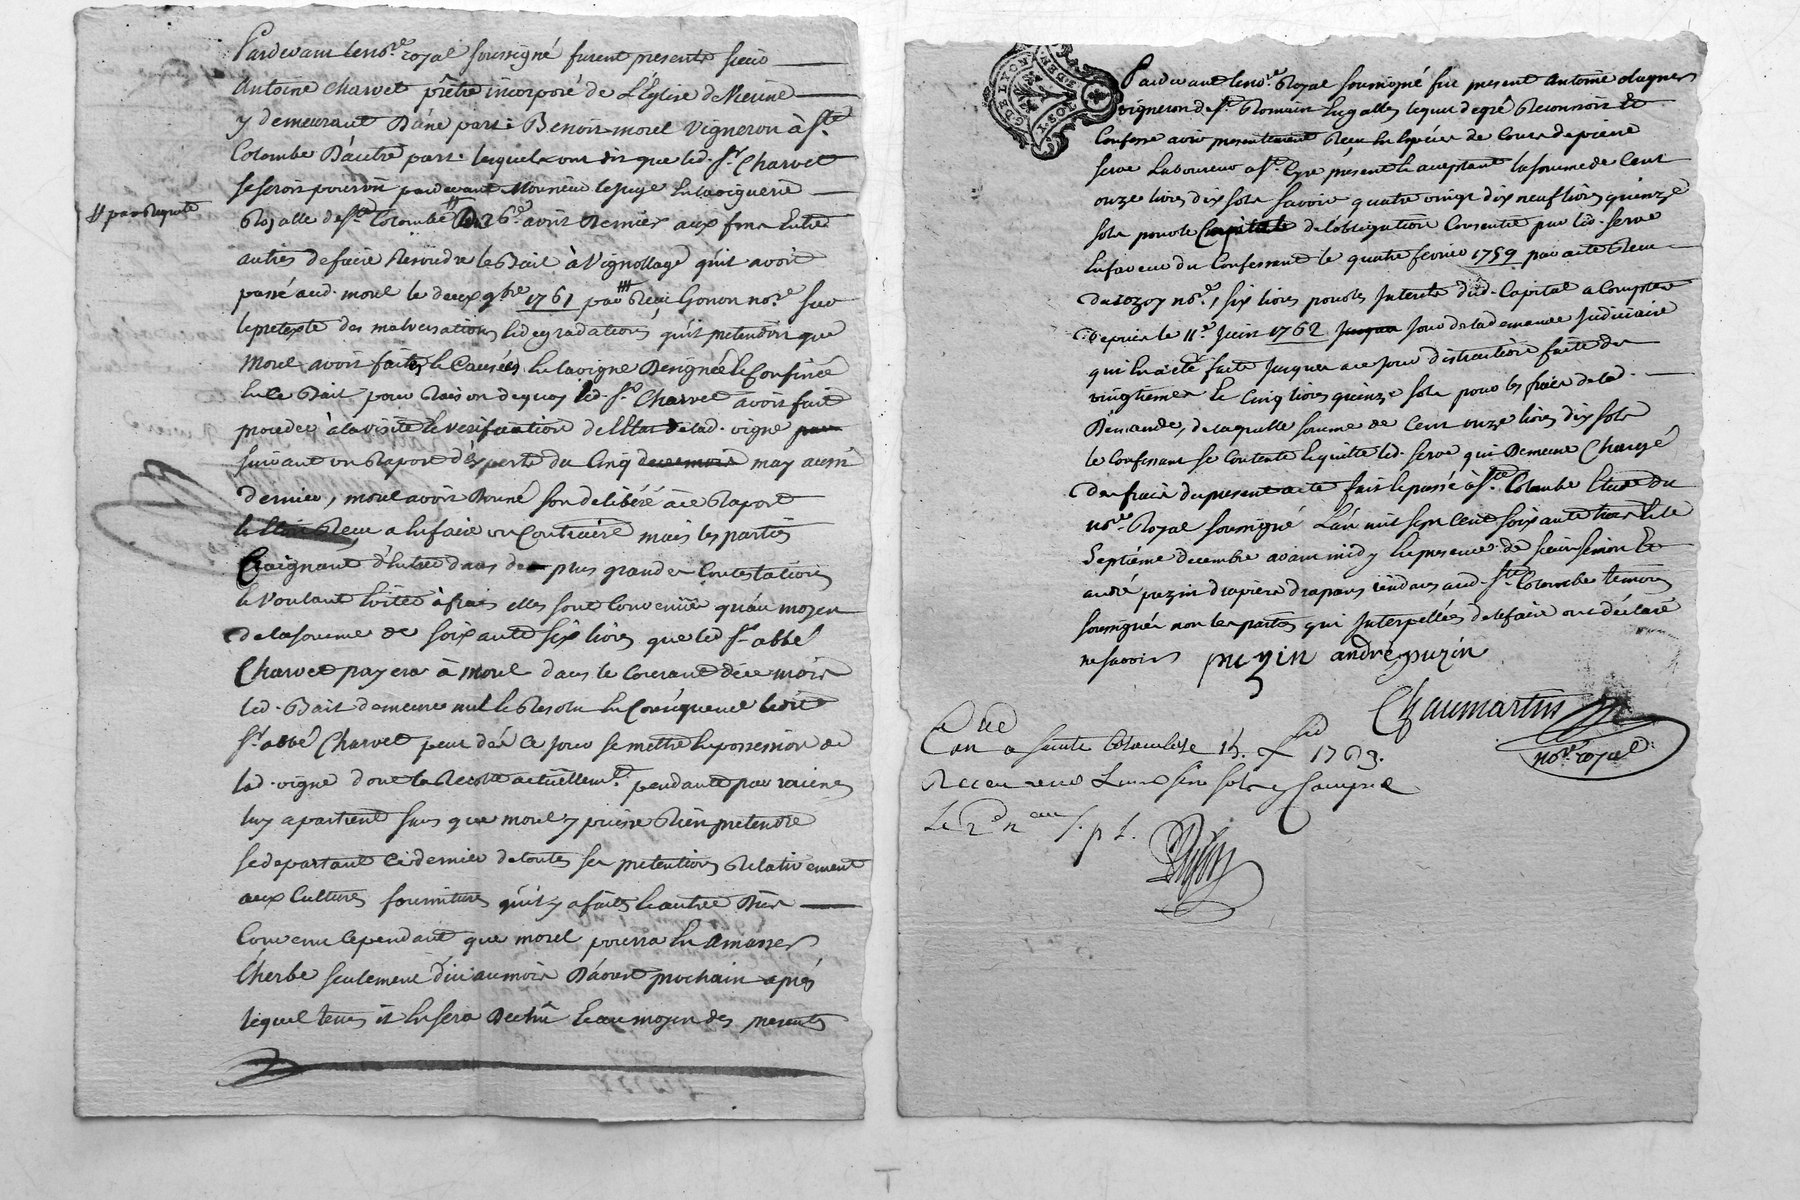 Pardevant le no.re royal soussigné furent presents sieur
Antoine Charvet prêtre incorporé de L'Eglise de Vienne
y demeurant D'une part : Benoit morel Vigneron à Ste
Colombe D'autre part. lesquels ont dit que led. Sr. Charvet
se seroit pourvû pardevant Monsieur le juge en la viguerie
Royalle de Ste Colombe # le 26e. avril Dernier aux fins Entre
# par Requete
autres de faire Resoudre le Bail à Vignollage qu'il avoit
passé aud. morel le deux 9bre 1761 par Me Gonon no.re sur
le pretexte des malversations & degradations, qu'il pretendoit que
Morel avoit faites & Causées en la vigne Designée & Confinée
en ce Bail pour Raison de quoy led. Sr. Charvet avoit fait
proceder à la visite & verification de l'Etat de lad. vigne
suivant un Raport d'experts du Cinq may aussi
dernier, morel avoit Donné son deliberé à ce Raport
a en faire un Contraire mais les parties
Craignant d'Entrer dans de plus grandes Contestations
& Voulant Eviter à frais elles sont Convenues qu'au moyen
de la somme de soixante six livres que led Sr. abbé
Charvet payera à morel dans le Courant de ce mois
led. Bail demeure nul & Resolu en Conséquence ledit
Sr. abbé Charvet peut dès ce jour se mettre en possession de
lad. vigne dont la Recolte actuellemt. pendante par racines
luy apartient sans que morel y puisse Rien pretendre
se departant ce dernier de toutes ses pretentions Relativement
aux Cultures fournitures qu'il y a faites & autres Bien
Convenu Cependant que morel pourra En amasser
L'herbe seulement d'ici au mois D'aoust prochain après
lequel tems il En sera Dechû & au moyen des presents
Pardevant le no.re Royal soussigné fut present Antoine
vigneron de St. Romain En galles lequel de gré Reconnoit Et
Confesse avoir presentement Reçu En Espéces de Cours de pierre
serve Laboureur a St. Cyre présent & aceptant la somme de Cent
onze livres dix sols savoir quatre vingt dix neuf livres quinze
sols pour le Capital de l'obligation Consentie par led. serve
En faveur du Confessant le quatre fevrier 1759 par acte Reçu
Durozoy no.re, six livres pour les Interets dud. Capital a Compter
depuis le 11e. Juin 1762 jour de la demande Judiciaire
qui En a été faite jusques a ce jour distraction faite du
vingtieme & Cinq livres quinze sols pour les frais de lad.
Demande, de laquelle somme de Cent onze livres dix sols
le Confessant se Contente & quitte led. serve qui Demeure Chargé
des frais du present acte fait & passé à Ste. Colombe Etude du
no.re Royal soussigné L'an mil sept Cent soixante trois & le
Septiéme decembre avant midy En presence de sieur simon Et
andré puzin drapiers drapans residans aud. Ste Colombe temoins
soussignés non les parties qui Interpellées de le faire ont déclaré
ne savoir puzin andré puzin
Chaumartin
no.re royal
a Sainte Colombe 1763.
Reçu